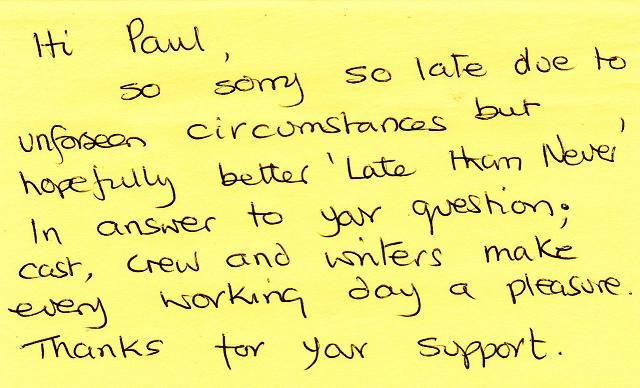 Hi Paul,
so sorry so late due to
unforseen circumstances but
hopefully better 'Late than Never'
In answer to your question;
cast, crew and writers make
every working day a pleasure.
Thanks for your support.